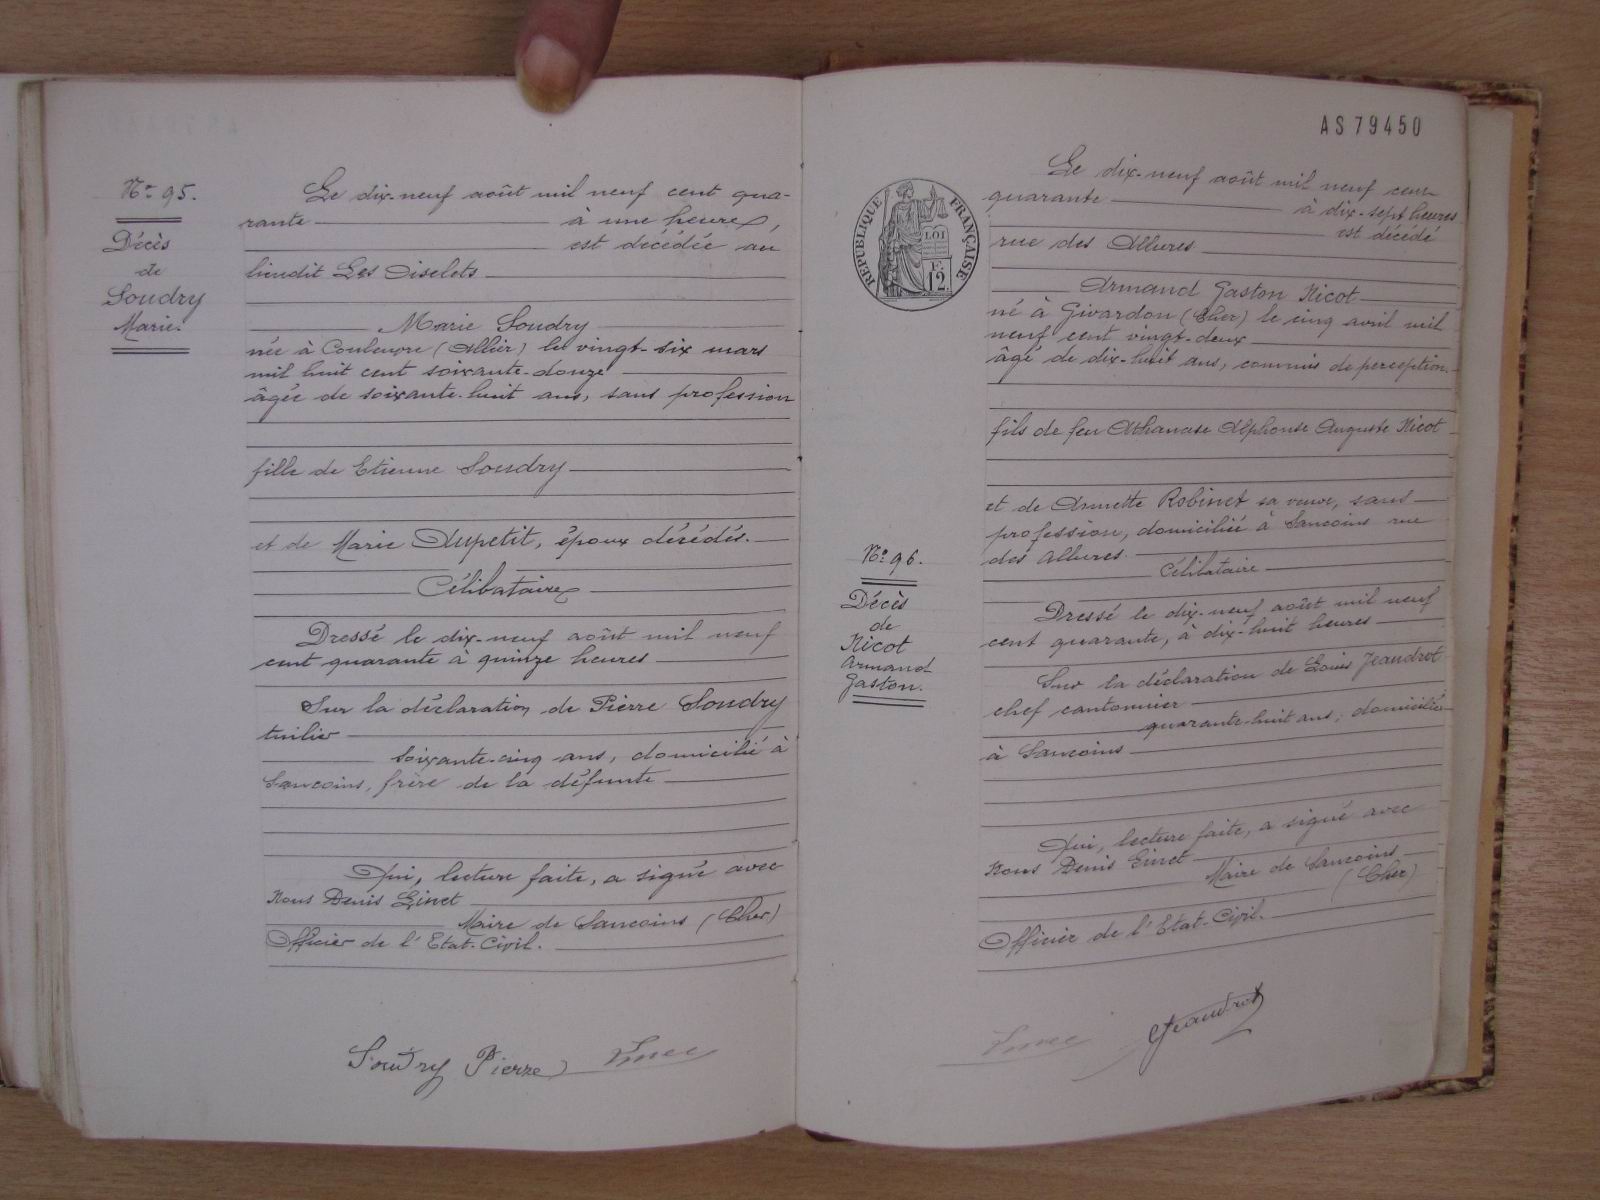 No 95.
Décès
de
Soudry
Marie.
Le dix-neuf août mil neuf cent qua-
rante à une heure,
est décédée au
lieudit Les Oiselets
Marie Soudry
née à Couleuvre (Allier) le vingt-six mars
mil huit cent soixante-douze
âgée de soixante-huit ans, sans profession
fille de Etienne Soudry
et de Marie Dupetit, époux décédés.
Célibataire
Dressé le dix-neuf août mil neuf
cent quarante à quinze heures
Sur la déclaration de Pierre Soudry
tuilier
soixante-cinq ans, domicilié à
Sancoins, frère de la défunte
Qui, lecture faite, a signé avec
Nous Denis Ginet
Maire de Sancoins (Cher)
Officier de l'Etat-Civil.
Soudry Pierre
AS 79450
RÉPUBLIQUE FRANÇAISE
LOI
F.
12.
Le dix-neuf août mil neuf cent
quarante à dix-sept heures
est décédé
rue des Allures
Armand Gaston Nicot
né à Givardon (Cher) le cinq avril mil
neuf cent vingt-deux
âgé de dix-huit ans, commis de perception
fils de feu Athanase Alphonse Auguste Nicot
et de Annette Robinet sa veuve, sans
profession, domiciliée à Sancoins rue
des Allures.
Célibataire
No 96.
Décès
de
Nicot
Armand
Gaston.
Dressé le dix-neuf août mil neuf
cent quarante, à dix-huit heures
Sur la déclaration de Louis Jeaudrot
chef cantonnier
quarante-huit ans, domicilié
à Sancoins
Qui, lecture faite, a signé avec
Nous Denis Ginet
Maire de Sancoins
(Cher)
Officier de l'Etat-Civil.
Jeaudrot